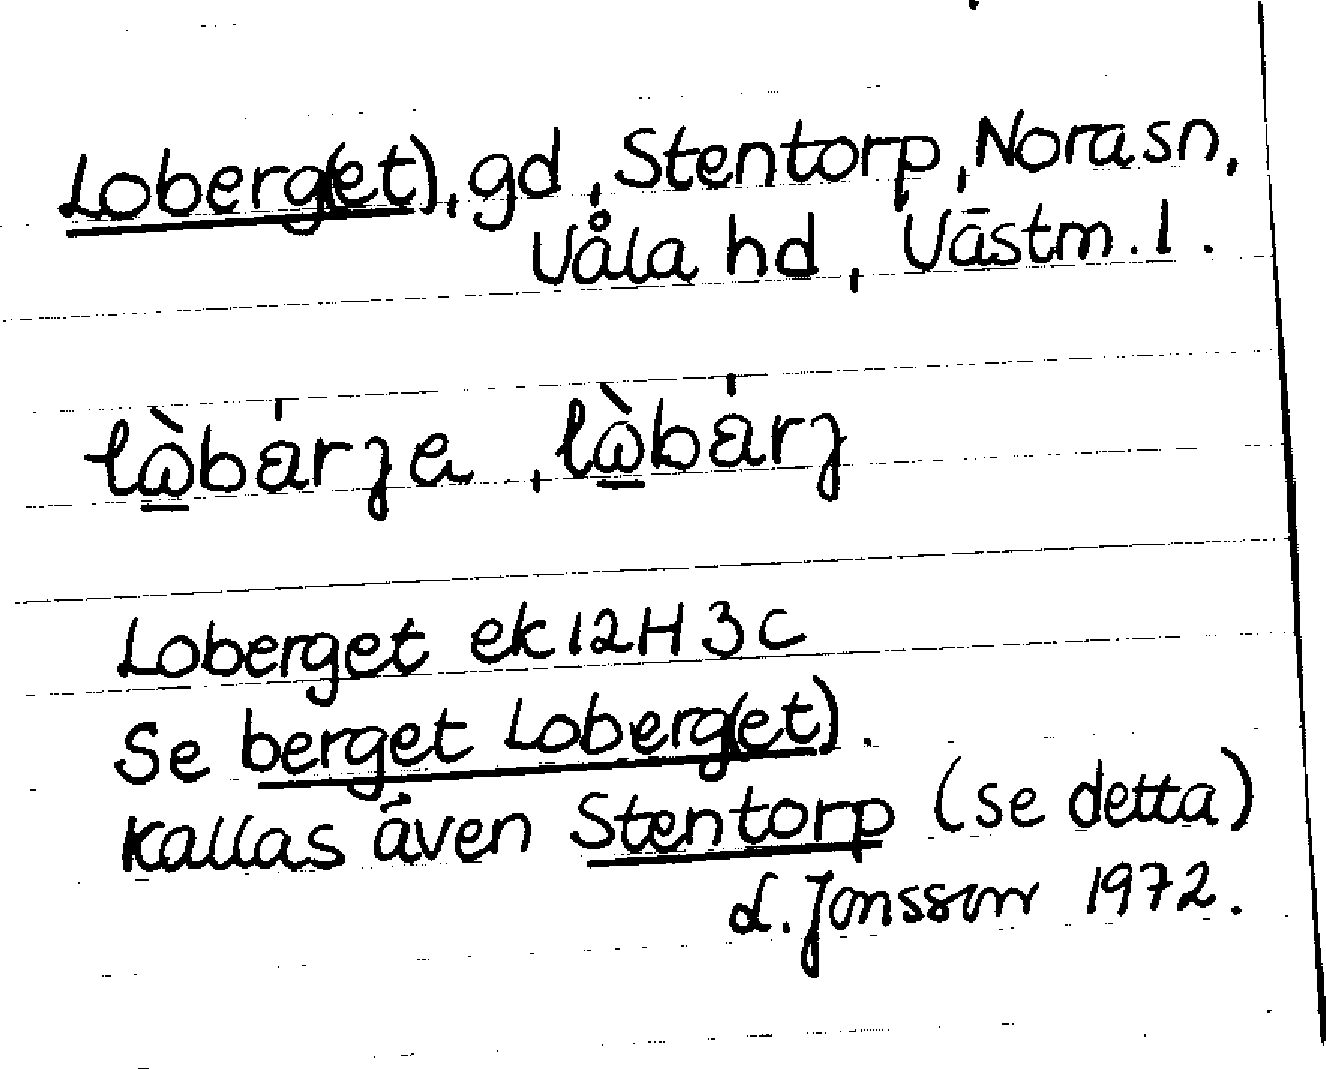 Loberg(et), gd, Stentorp, Nora sn,
Våla hd, Västm. l.
lὼ̲bárȝa, lὼ̲bárȝ
Loberget ek 12H 3c
Se berget Loberg(et).
Kallas även Stentorp (se detta)
L. Jonsson 1972.